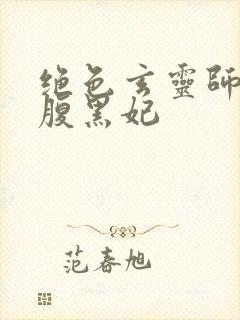 绝色玄靈師
腹黑妃
范春旭